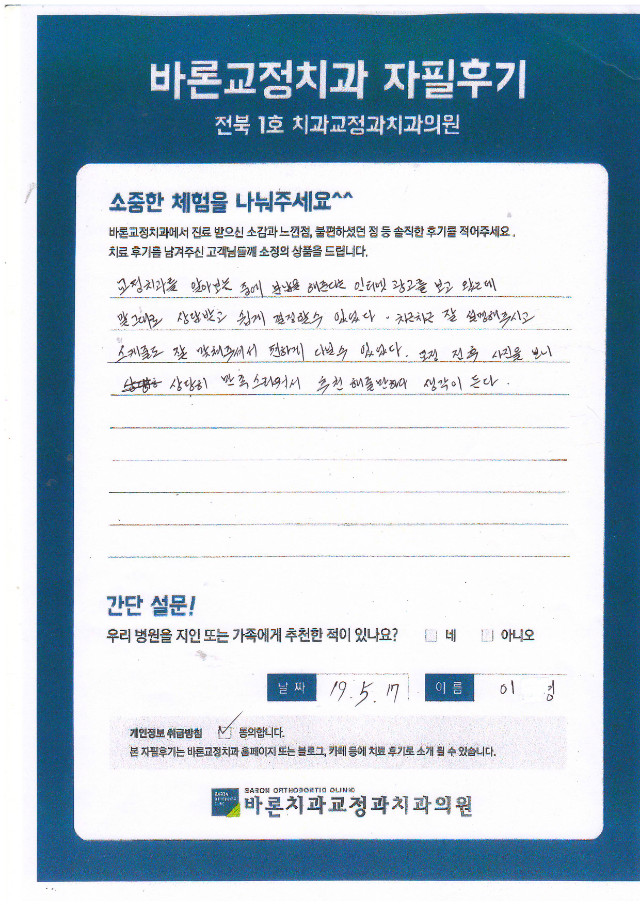 바른교정치과 자필후기
전북 1호 치과교정과치과의원
소중한 체험을 나눠주세요^^
바른교정치과에서 진료 받으신 소감과 느낀점, 불편하셨던 점 등 솔직한 후기를 적어주세요.
치료 후기를 남겨주신 고객님들께 소정의 상품을 드립니다.
교정치과를 알아보는 중에 해준다는 인터넷 광고를 보고 왔는데
말그대로 상담받고 쉽게 결정할수 있었다. 차근차근 잘 설명해주시고
스케줄도 잘 맞춰주셔서 편하게 다닐수 있었다. 교정 전후 사진을 보니
상당히 만족스러워서 추천 해줄만하다 생각이 든다.
간단 설문!
우리 병원을 지인 또는 가족에게 추천한 적이 있나요? 네 아니오
날 짜 19. 5. 17 이 름 이 경
개인정보 취급방침 동의합니다.
본 자필후기는 바른교정치과 홈페이지 또는 블로그, 카페 등에 치료 후기로 소개 될 수 있습니다.
BARON ORTHODONTIC CLINIC
바른치과교정과치과의원